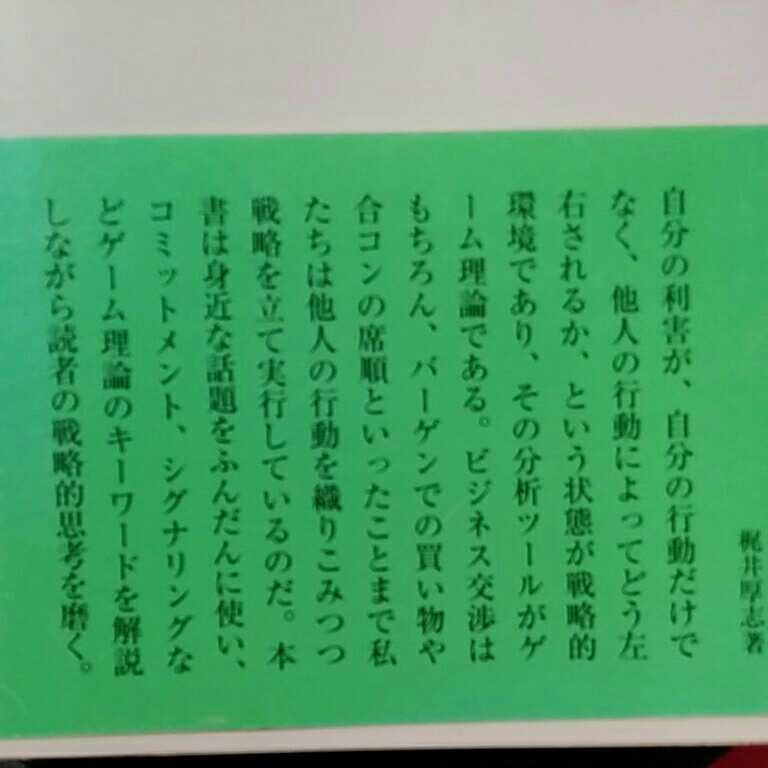 梶井厚志著
自分の利害が、自分の行動だけで
なく、他人の行動によってどう左
右されるか、という状態が戦略的
環境であり、その分析ツールがゲ
ーム理論である。ビジネス交渉は
もちろん、バーゲンでの買い物や
合コンの席順といったことまで私
たちは他人の行動を織りこみつつ
戦略を立て実行しているのだ。本
書は身近な話題をふんだんに使い、
コミットメント、シグナリングな
どゲーム理論のキーワードを解説
しながら読者の戦略的思考を磨く。